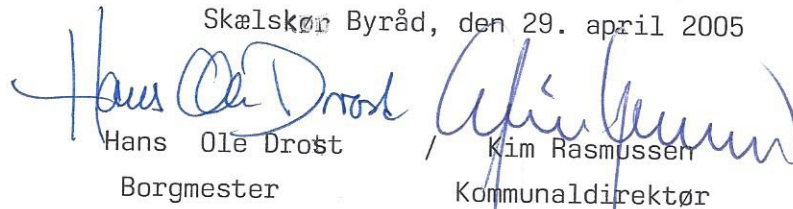 Skælskør Byråd, den 29. april 2005
Hans Ole Drost
Hans Ole Drost / Kim Rasmussen
Borgmester Kommunaldirektør